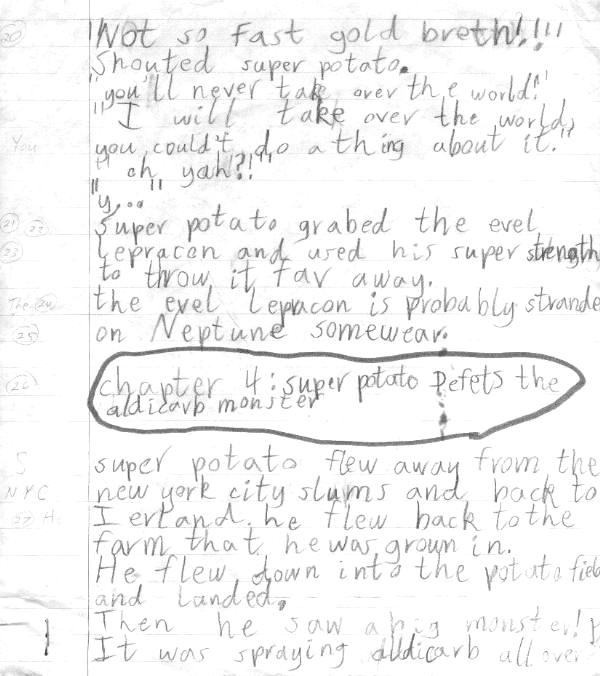 20 "Not so Fast gold breth!!!"
Shouted super potato.
"you'll never take over the world!"
"I will take over the world,
You you could't do a thing about it."
"oh yah?!"
"y..."
21 22 Super potato grabed the evel
23 Lepracon and used his super strength
to throw it far away.
The 24 the evel Lepracon is probably strande
25 on Neptune somewear.
26 chapter 4: super potato Defets the
aldicarb monster
S super potato flew away from the
NYC new york city slums and back to
27 He Ierland. he flew back to the
farm that he was groun in.
He flew down into the potato field
and landed.
Then he saw a big monster!
It was spraying aldicarb all over